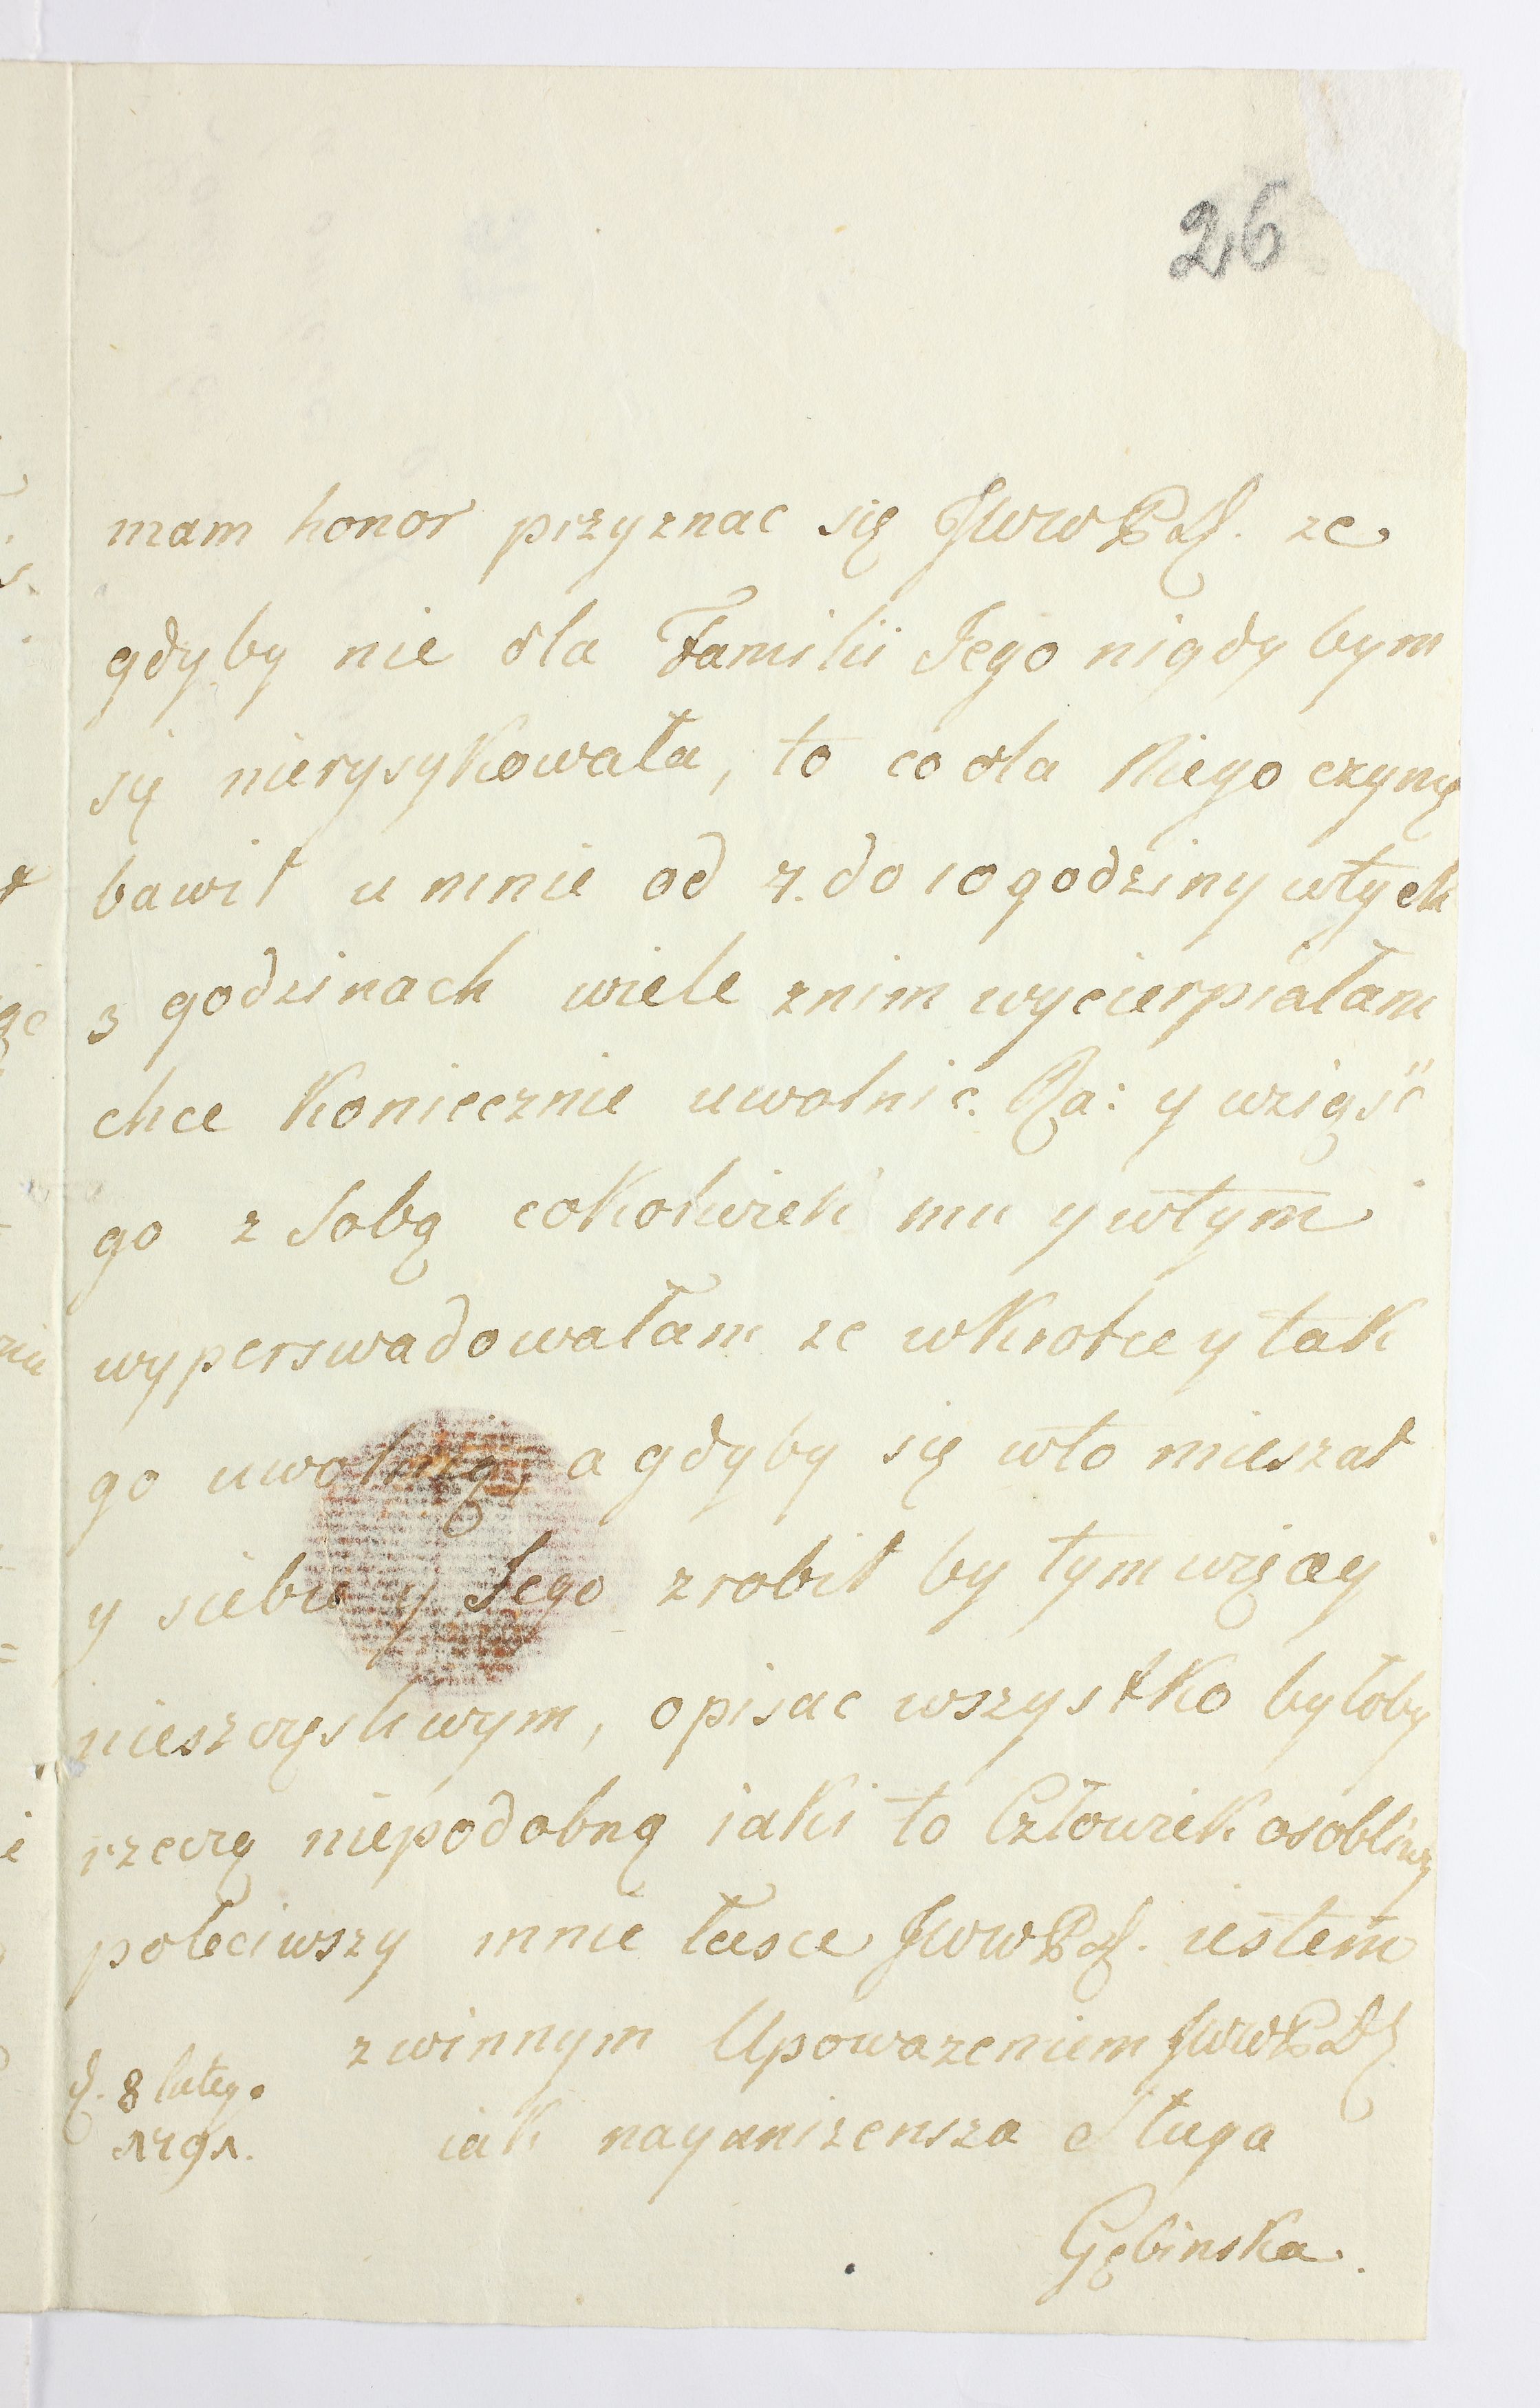 26
mam honor przyznac się JWWPD. ze
gdyby nie dla Familii Jego nigdy bym
się nierysykowała, to co dla Niego czynię
bawił u mnie od 7. do 10 godziny wtych
3 godzinach wiele znim wycierpiałam
chce Koniecznie uwolnic. Ra: y wziąść
go z Sobą cokolwiek mu y wtym
wyperswadowałam ze wKrotce y tak
go uwolnią, a gdyby się wto mieszał
y siebie y Jego zrobił by tym więcey
nieszczęsliwym, opisac wszystko byłoby
rzeczą niepodobną iaki to Człowiek osobliwy
poleciwszy mnie łasce JWWPD. iestem
zwinnym Upowazeniem JWWPD
d. 8 lutego
1791.
iak nayunizensza Sługa
Gębinska.